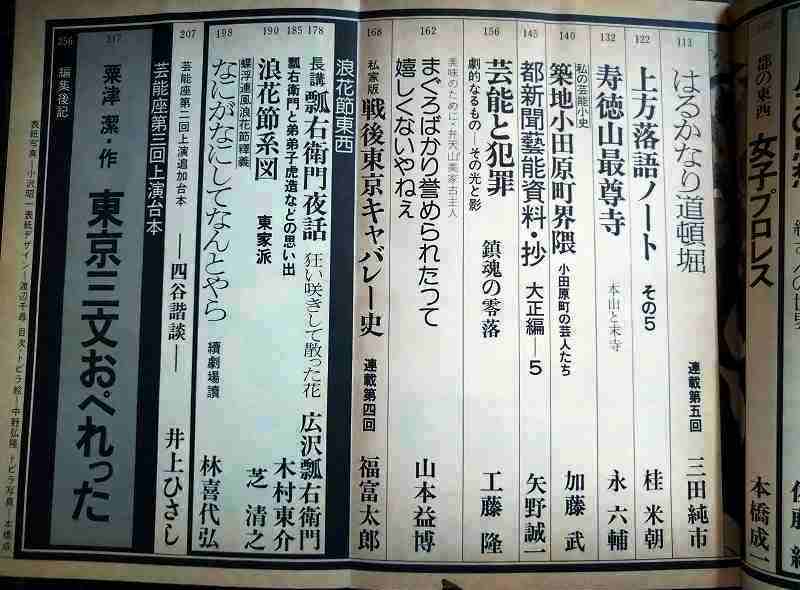 都の東西 女子プロレス
本橋成一
113
はるかなり道頓堀 連載第五回 三田純市
122
上方落語ノート その5 桂 米朝
132
寿徳山最尊寺 本山と末寺 永 六輔
140
私の芸能小史
築地小田原町界隈 小田原町の芸人たち 加藤 武
145
都新聞藝能資料・抄 大正編—5 矢野誠一
156
劇的なるもの その光と影
芸能と犯罪 鎮魂の零落 工藤 隆
162
美味のために・弁天山美家古主人
まぐろばかり誉められたって
嬉しくないやねえ 山本益博
168
私家版 戦後東京キャバレー史 連載第四回 福富太郎
浪花節東西
178
長講 瓢右衛門夜話 狂い咲きして散った花 広沢瓢右衛門
185
瓢右衛門と弟弟子虎造などの思い出 木村東介
190
浪花節系図 東家派 芝 清之
198
蝶浮連風浪花節釋義
なにがなにしてなんとやら 續劇場讀 林喜代弘
207
芸能座第二回上演追加台本 —四谷諧談— 井上ひさし
芸能座第三回上演台本
217
粟津 潔・作 東京三文おぺれった
256
編集後記
表紙写真—小沢昭一 表紙デザイン—渡辺千尋 目次・トビラ絵—中野弘隆 トビラ写真—本橋成一